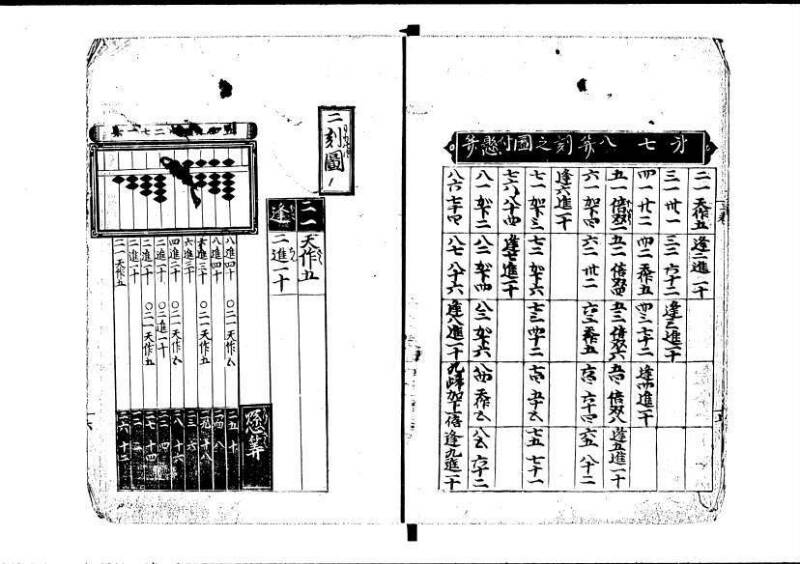 七八算刻之圖付懸算
二一 天作五 逢二進一十
三一 卅一 三二 六十二 逢三進一十
四一 廿二 四二 天作五 四三 七十二 逢四進一十
五一 倍双二 五二 倍双四 五三 倍双六 五四 倍双八 逢五進一十
六一 加下四 六二 卅二 六三 天作五 六四 六十四 六五 八十二
逢六進一十
七一 加下三 七二 加下六 七三 四十二 七四 五十五 七五 七十一
七六 八十四 逢七進一十
八一 加下二 八二 加下四 八三 加下六 八四 天作五 八五 六十二
八六 七十四 八七 八十六 逢八進一十 九帰加下一倍 逢九進一十
二刻圖
二一 天作五
逢 二進一十
懸算
八進四十 〇二一天作五 二五 十
八進四十 二四 八
六進三十 〇二一天作五 二九 十八
六進三十 二三 六
四進二十 〇二一天作五 二八 十六
二進一十 〇二進一十 二二 四
二進一十 〇二一天作五 二七 十四
二進一十
二一天作五 二六 十二